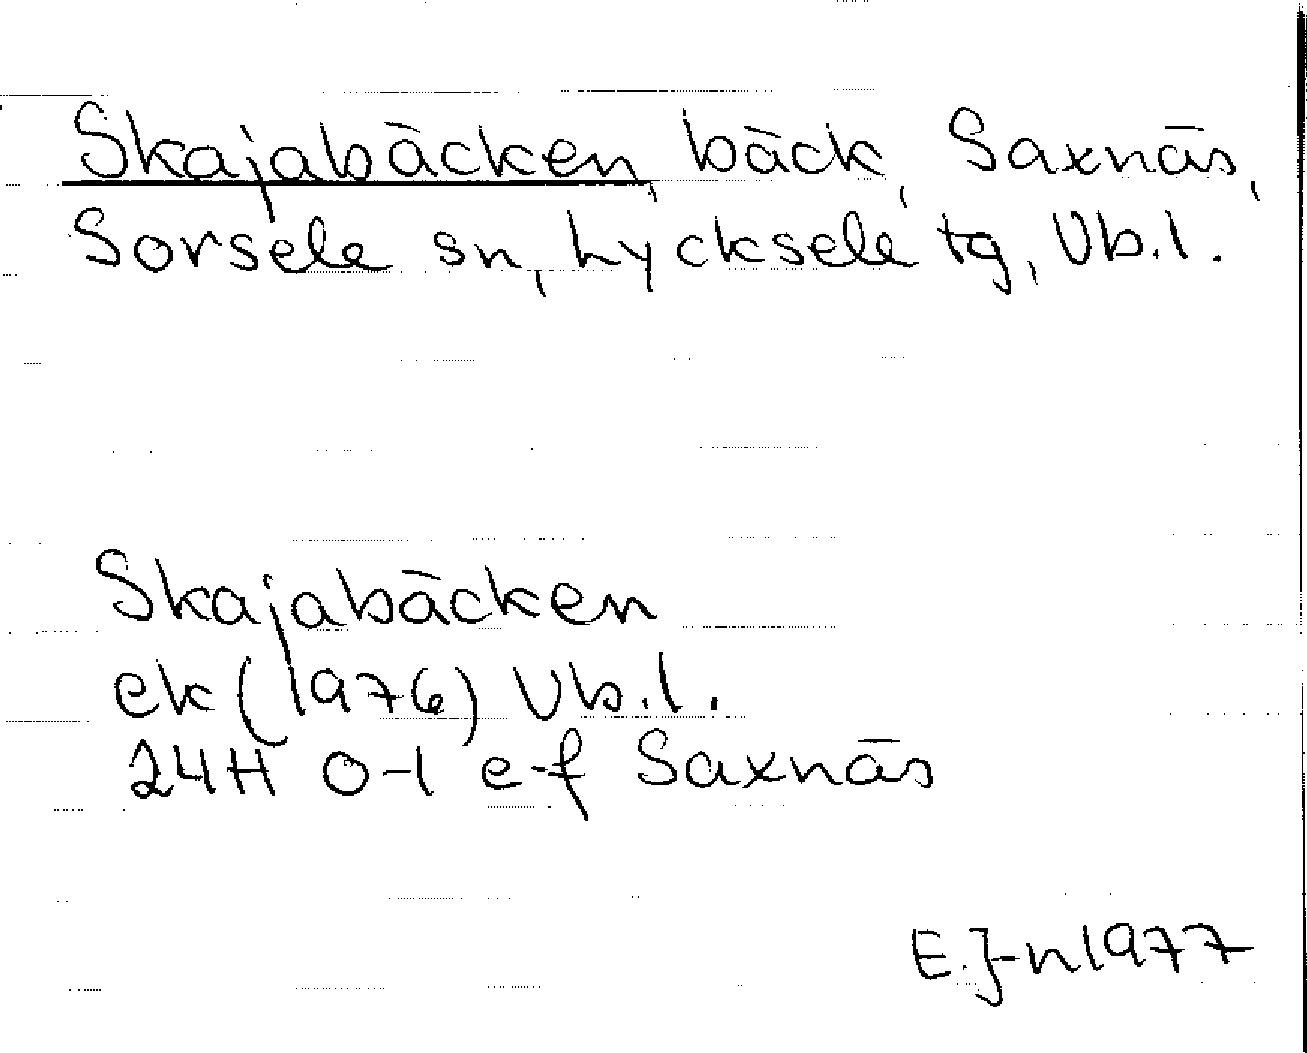 Skajabäcken, bäck, Saxnäs,
Sorsele sn, Lycksele tg, Vb.l.
Skajabäcken
ek (1976) Vb.l.
24H 0-1 e-f Saxnäs
E.J-n 1977